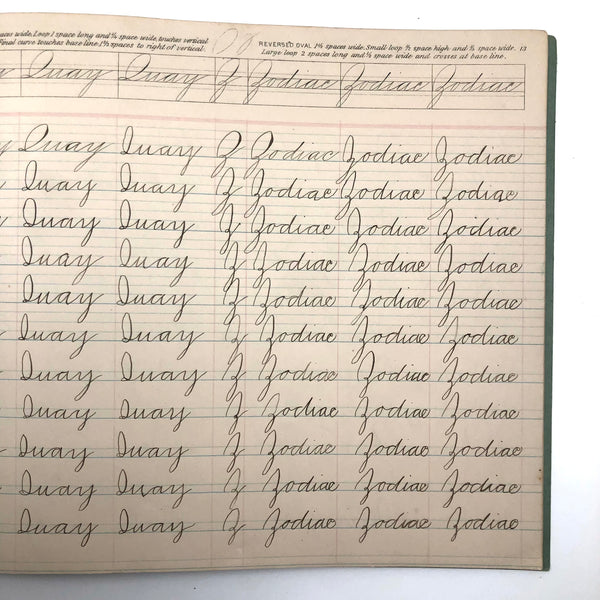 wide. Loop 1 space long and space wide, touches vertical
Final curve touches base line, spaces to right of vertical.
REVERSED OVAL spaces wide. Small loop space high and space wide. 13
Large loop 2 spaces long and space wide and crosses at base line.
Quay Quay Z Zodiac Zodiac Zodiac
Quay Quay Z Zodiac Zodiac Zodiac
Quay Quay Z Zodiac Zodiac Zodiac
Quay Quay Z Zodiac Zodiac Zodiac
Quay Quay Z Zodiac Zodiac Zodiac
Quay Quay Z Zodiac Zodiac Zodiac
Quay Quay Z Zodiac Zodiac Zodiac
Quay Quay Z Zodiac Zodiac Zodiac
Quay Quay Z Zodiac Zodiac Zodiac
Quay Quay Z Zodiac Zodiac Zodiac
Quay Quay Z Zodiac Zodiac Zodiac
Quay Quay Z Zodiac Zodiac Zodiac